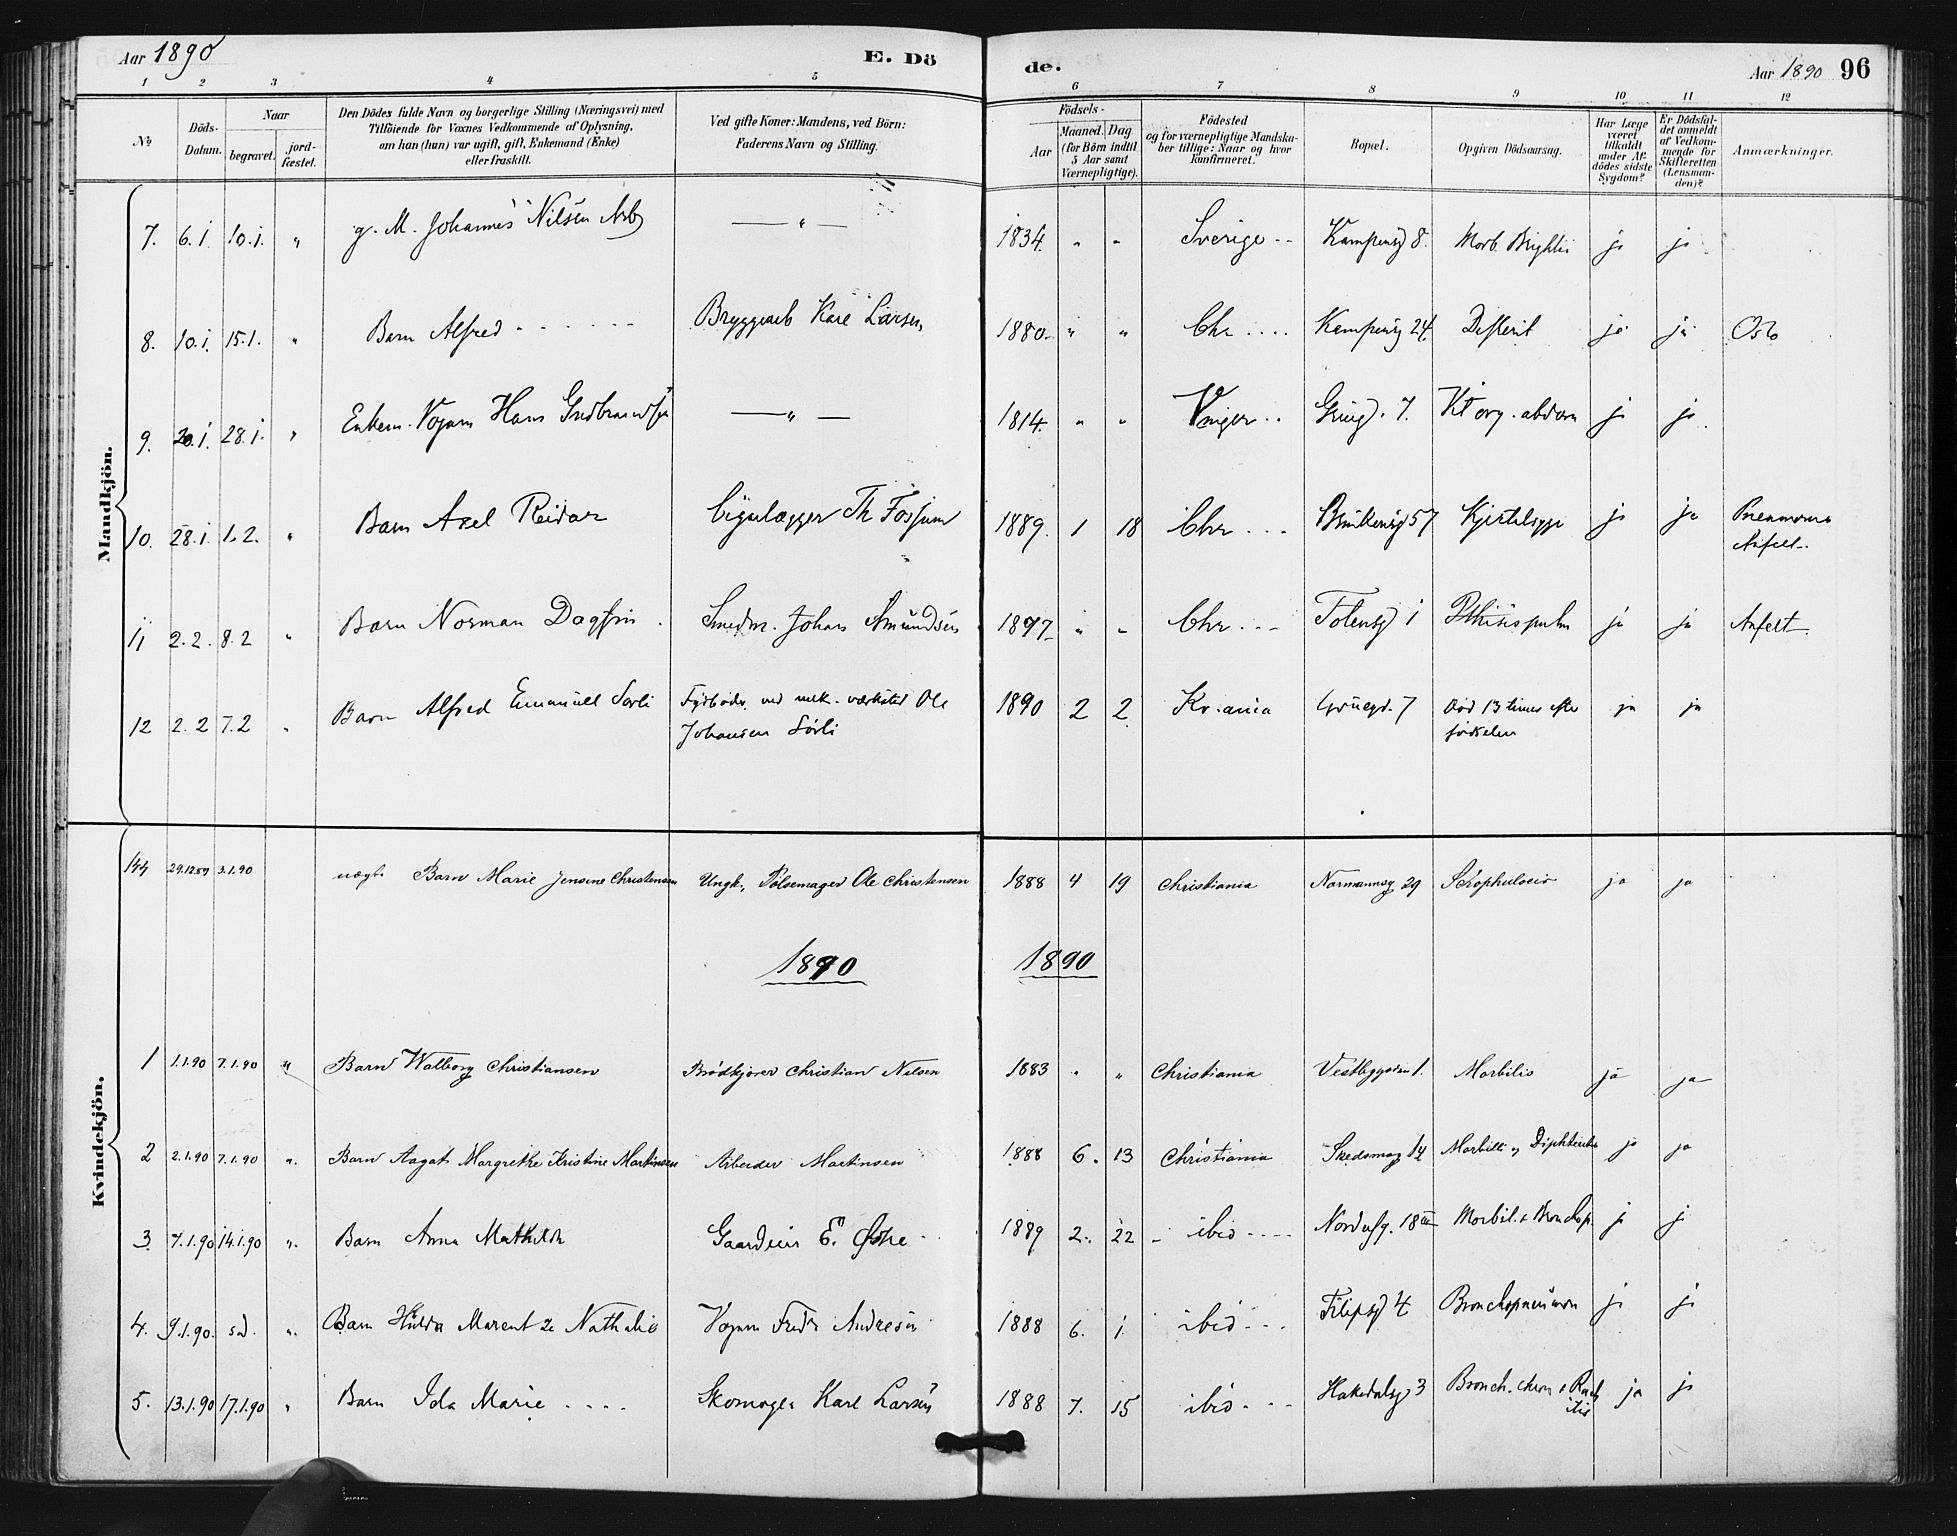 Aar 1890
E. Dö
de.
Aar 1890 96
1 2 3 4 5 6 7 8 9 10 11 12
No
Döds-
Datum.
Naar
begravet.
jord-
fæstet.
Den Dödes fulde Navn og borgerlige Stilling (Næringsvei) med
Tilföiende for Voxnes Vedkommende af Oplysning,
om han (hun) var ugift, gift, Enkemand (Enke)
eller fraskilt.
Ved gifte Koner: Mandens, ved Börn:
Faderens Navn og Stilling.
Födsels-
Aar
Maaned. Dag
(for Börn indtil
5 Aar samt
Værnepligtige).
Födested
og for værnepligtige Mandska-
ber tillige: Naar og hvor
Konfirmeret.
Bopæl.
Opgiven Dödsaarsag.
Har Læge
været
tilkaldt
under Af-
dödes sidste
Sygdom?
Er Dödsfal-
det anmeldt
af Vedkom-
mende for
Skifteretten
(Lensman-
den)?
Anmærkninger.
Mandkjön.
7. 6.1. 10.1. " g. M. Johannes Nilsen Arb — " — 1834. " " Sverige -- Kampensg 8. Morb. Brightii ja ja
8. 10.1. 15.1. " Barn Alfred - - - - - - Bryggearb Karl Larsen 1880. " " Chr .... Kampensg 24. Difterit ja ja Oslo
9. 20.1. 28.1. " Enkem. Vognm Hans Gudbrandsen — " — 1814. " " Vinger .. Grüg. 7. Vit org. abdom ja ja
10. 28.1. 1.2. " Barn Axel Reidar Th Fossum 1889. 1 18 Chr ... 57 ja ja
Anfelt.
11 2.2. 8.2 " Barn Norman Dagfin Smedm. Johan Amundsen 1897 " " Chr ... Totensg 1 Pthisis pulm ja ja Anfelt.
12 2.2 7.2 " Barn Alfred Emanuel Sørli Fyrbøder ved mek. værksted Ole
Johansen Sørli
1890 2 2 Kr.ania Grüegd. 7 død 13 timer efter
fødselen
ja ja
144 29.12.89 3.1.90 uægt. Barn Marie Jensine Christensen Ungk. Pølsemager Ole Christensen 1888 4 19 Christiania Normannsg 29 Scrophulosis ja ja
1890
1890
Kvindekjön.
1 1.1.90 7.1.90 " Barn Walborg Christiansen Brødkjører Christian Nilsen 1883 " " Christiania 1. Morbilis ja ja
2 2.1.90 7.1.90 " Barn Aagat Margrethe Kristine Martinsen Arbeider Martinsen 1888 6. 13 Christiania Skedsmog 14 Morbilli og Diphteritis ja ja
3. 7.1.90 14.1.90 " Barn Anna Mathilde Gaardeier E. 1889 2. 22 - ibid .... 18 Morbil. & Bronchop. ja ja
4. 9.1.90. s.d. " Barn Hulda Nathalie Vognm Fredr Andresen 1888 6. 1. ibid ... Filipsg 4. Bronchopneumon ja ja
5. 13.1.90 17.1.90 " Barn Ida Marie .... Skomager Karl Larsen 1888 7. 15 ibid ... Hakedalsg 3 Bronch. chron & Rach
itis
ja ja